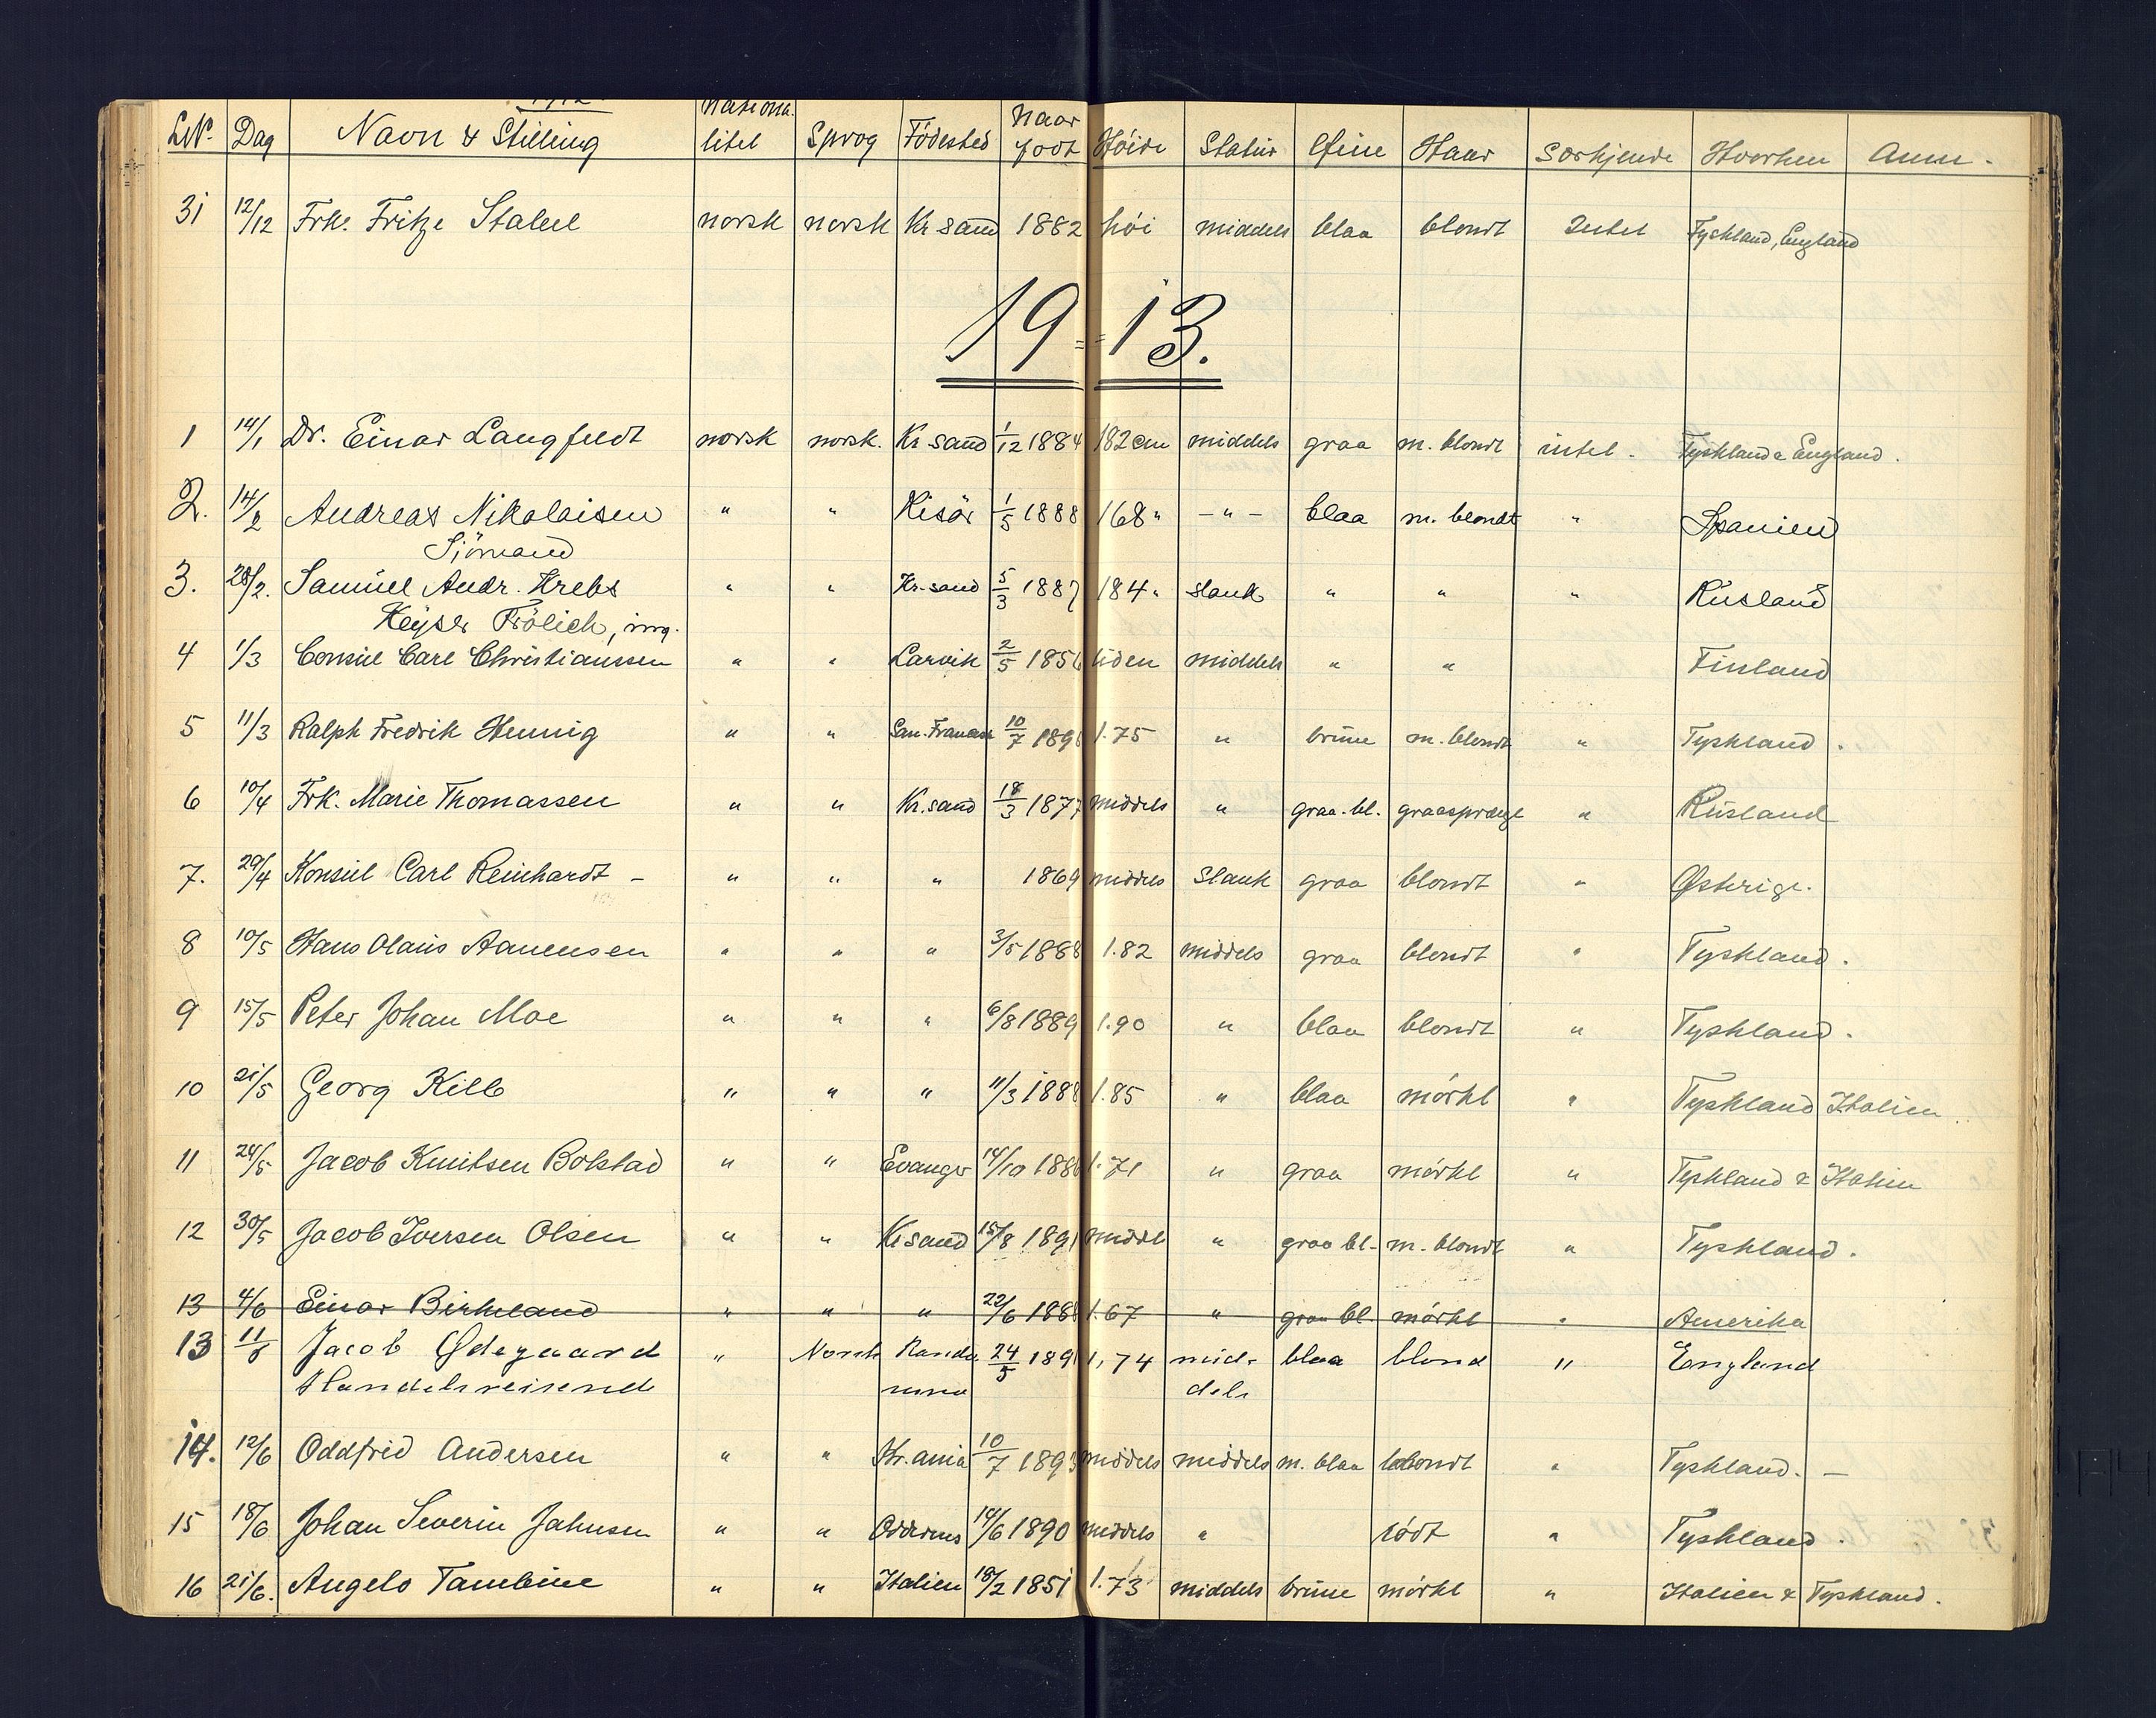 1912
LN. Dag Navn & Stilling Nationalitet Sprog Födested Naar födt Höide Statur Öine Haar Særkjende Hvorhen Anm.
31 12/12 Frk. Fritze norsk norsk Kr sand 1882 höi middels blaa blondt Intet Tyskland, England
19=13.
1 14/1 Dr. Einar Langfeldt norsk norsk. Kr sand 1/12 1884 182 cm middels graa m. blondt intet. Tyskland & England.
2. 14/2 Andreas Nikolaisen " " 1/5 1888 168 " -"- blaa m. blondt " Spanien
Sjömand
3. 28/2. Samuel Andr. Krebs " " Kr. sand 5/3 1887 184 " slank " " " Rusland
Keyser Frölich, ing.
4 1/3 Consul Carl Christianssen " " Larvik 2/5 1856 liden middels " " Finland
5 11/3 Ralph Fredrik Hennig " " 10/7 189 1.75 " brune m. blondt " Tyskland.
6 10/4 Frk. Marie Thomassen " " Kr. sand 18/3 1877 middels " graa. bl. graasprængt " Rusland
7. 29/4 Konsul Carl Reinhardt - " " " 1869 middels slank graa blondt " Østerige.
8 10/5 Hans Olaus Aanensen " " " 3/5 1888 1.82 middels graa blondt " Tyskland.
9 15/5 Peter Johan Moe " " " 6/8 1889 1.90 " blaa blondt " Tyskland.
10 21/5 Georg Kilb " " " 11/3 1888 1.85 " blaa mörkt " Tyskland Italien
11 24/5 Jacob Knutsen Bolstad " " Evanger 14/10 188 1.71 " graa mörkt " Tyskland & Italien
12 30/5 Jacob Iversen Olsen " " Kr sand 15/8 1891 middl " graa bl- m. blondt " Tyskland.
13 4/6 Einar Birkeland " " " 22/6 188 1.67 " graa bl. mörkt " Amerika
13 11/6 Jacob Ødegaard " Norsk Randa 24/5 189 1,74 mid- blaa blond " England
Handelsreisende dels
14. 12/6 Oddfrid Andersen " " Kr. ania 10/7 1893 middels middels m. blaa blondt " Tyskland. -
15 18/6 Johan Severin Jahnsen " " Oddernes 14/6 1890 middels " rödt " Tyskland.
16 21/6. Angelo Tambine " " Italien 19/2 1851 1.73 middels brune mörkt " Italien & Tyskland.